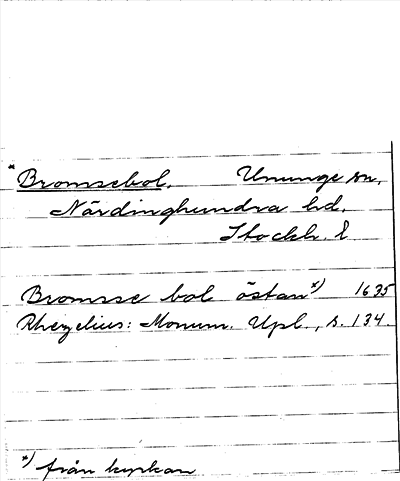 *Bromsebol. Ununge sn,
Närdinghundra hd.
Stockh. l
Bromsse bol östan *) 1635
Rhezelius: Monum. Upl., s. 134.
*) från kyrkan